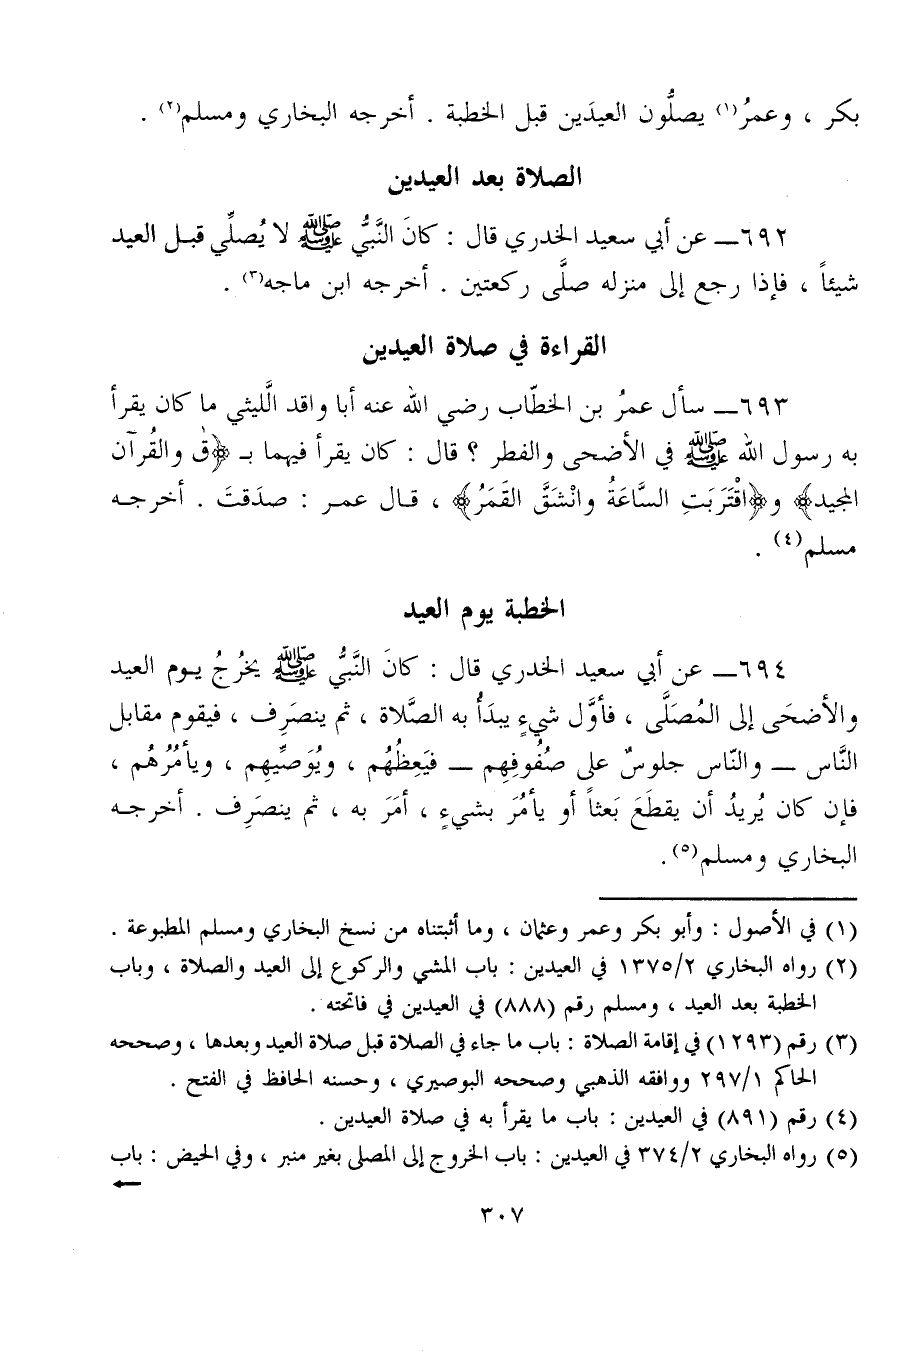 بكر ، وعمرُ(١) يصلُّون العيدَين قبل الخطبة . أخرجه البخاري ومسلم(٢) .
الصلاة بعد العيدين
٦٩٢ــ عن أبي سعيد الخدري قال : كانَ النَّبيُّ ﷺ لا يُصلِّي قبـل العيد
شيئاً ، فإذا رجع إلى منزله صلَّى ركعتين . أخرجه ابن ماجه(٣) .
القراءة في صلاة العيدين
٦٩٣ــ سأل عمرُ بن الخطّاب رضي الله عنه أبا واقد اللَّيثي ما كان يقرأ
به رسول الله ﷺ في الأضحى والفطر ؟ قال : كان يقرأ فيهما بـ ﴿قۤ والقُرآن
المجيد﴾ و﴿اقْتَرَبَتِ السَّاعَةُ وانْشَقَّ القَمَرُ﴾ ، قـال عمـر : صدَقتَ . أخرجـه
مسلم(٤) .
الخطبة يوم العيد
٦٩٤ــ عن أبي سعيد الخدري قال : كانَ النَّبيُّ ﷺ يخرُجُ يـوم العيد
والأضحَى إلى المُصَلَّى ، فأوَّل شيءٍ يبدَأُ به الصَّلاة ، ثم ينصَرِف ، فيقوم مقابل
النَّاس ــ والنّاس جلوسٌ على صُفُوفِهم ــ فيَعِظُهُم ، ويُوَصِّيهِم ، ويأمُرُهُم ،
فإن كان يُريدُ أن يقطَعَ بَعثاً أو يأمُرَ بشيءٍ ، أمَرَ به ، ثم ينصَرِف . أخرجـه
البخاري ومسلم(٥).
(١) في الأصول : وأبو بكر وعمر وعثمان ، وما أثبتناه من نسخ البخاري ومسلم المطبوعة .
(٢) رواه البخاري ١٣٧٥/٢ في العيدين : باب المشي والركوع إلى العيد والصلاة ، وباب
الخطبة بعد العيد ، ومسلم رقم (٨٨٨) في العيدين في فاتحته .
(٣) رقم (١٢٩٣) في إقامة الصلاة : باب ما جاء في الصلاة قبل صلاة العيد وبعدها ، وصححه
الحاكم ٢٩٧/١ ووافقه الذهبي وصححه البوصيري ، وحسنه الحافظ في الفتح .
(٤) رقم (٨٩١) في العيدين : باب ما يقرأ به في صلاة العيدين .
(٥) رواه البخاري ٣٧٤/٢ في العيدين : باب الخروج إلى المصلى بغير منبر ، وفي الحيض : باب
←
٣٠٧